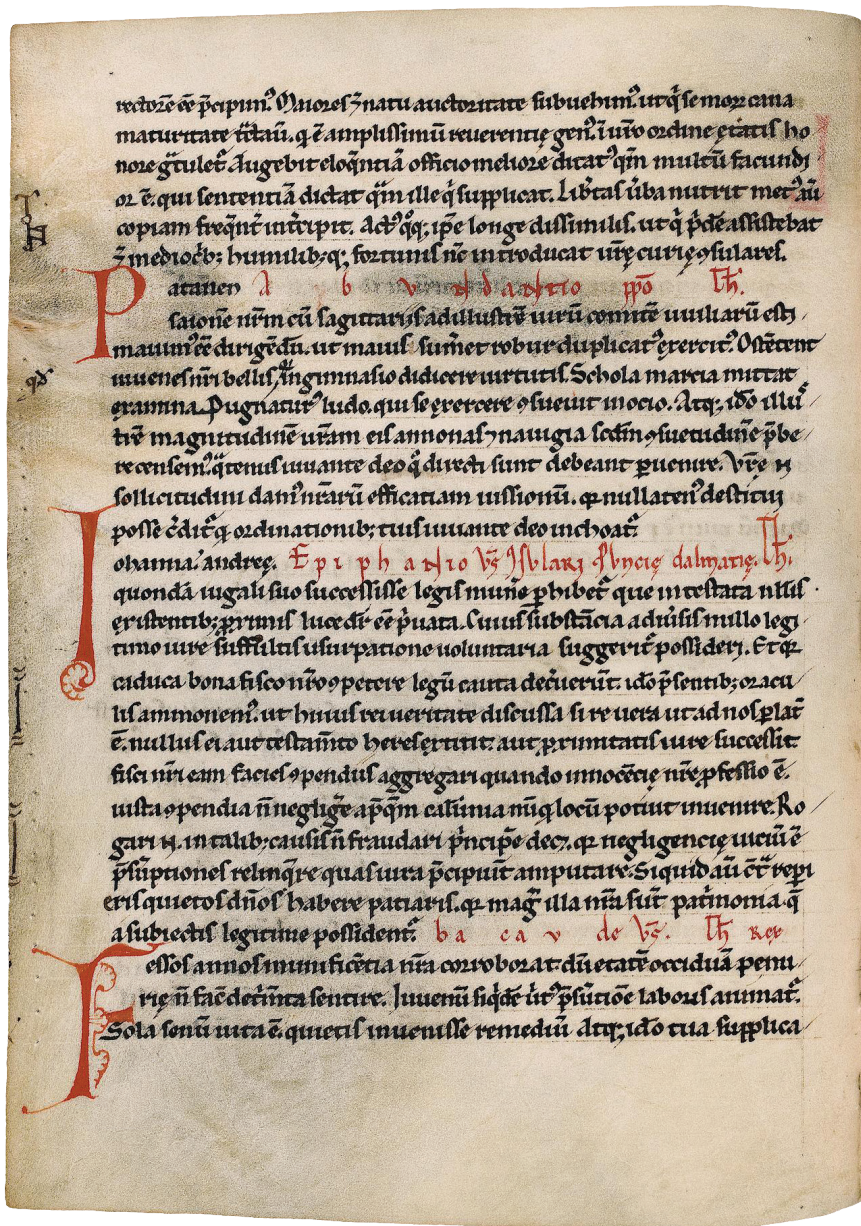 rectorē eē p̄cipim᷒. Maiores ⁊ natu auctoritate subuehim᷒. ut q̄ se mor̄ cana
maturitate t̄t̄aū. q ē amplissimū reuerentię gen᷒. ī ur̄o ordine ętatis ho
nore gr̄tulet᷒. Augebit eloq̄ntiā officio meliore ditat᷒ qm̄ multū facundi
or ē. qui sententiā dictat qm̄ ille q̄ supplicat. Lib̄tas ūba nutrit met᷒ aū
copiam freq̄nt̄ int̄cipit. Act᷒ qq; ip̄e longe dissimilis. ut q̄ p̄de assistebat
⁊ mediocb; humilib; q; fortunis nc̄ introducat ur̄ę curię ꝯsulares.
Patanen A b u n d a n t i o ꝑp̄o Th̄.
saionē nr̄m cū sagitariis ad illustrē uirū comitē uuiliarū esti
mauim᷒ eē dirigēdū. ut maius sumet robur duplicat᷒ exercit᷒. Ostētent
iuuenes nr̄i bellis qđ in gimnasio didicere uirtutis. Schola marcia mittat
examina. Pugnatur᷒ ludo. qui se exercere ꝯsueuit in ocio. Atq; idō illu
trē magnitudinē ur̄am eis annonas ⁊ nauigia scdm̄ ꝯsuetudinē p̄be
re censem᷒. q̄tenus iuuante deo q̄ directi sunt debeant ꝑuenire. Vr̄ę ɴ
sollicitudini dam᷒ nr̄arū efficatiam iussionū. qr nullaten᷒ destitui
posse c̄dit᷒ q ordinationib; tuis iuuante deo inchoat᷒.
Iohanna᷒ andreę. E p i p h a n i o Vs̄ Ꝯsulari ꝓuincię dalmatię. Th̄.
quondā iugali suo successisse legis munē ꝑhibet᷒ que intestata nll̄is
existentib; ꝓximis luced᷒ eē p̄uata. Cuius substācia adūsis nullo legi
timo iure suffultis usurpatione uoluntaria suggerit᷒ possideri. Et qr
caduca bona fisco nr̄o ꝯpetere legū cauta dec̄uerūt. idō p̄sentib; oracu
lis ammonem᷒. ut huius rei ueritate discussa si re uera ut ad nos ꝑlat᷒
ē. nullus ei aut testam̄to heres extitit. aut ꝓximitatis iure successit
fisci nr̄i eam facies ꝯpendus aggregari quando innocēcię nr̄ę ꝓfessio ē.
iusta ꝯpendia n̄ negligr̄e ap̄ qm̄ calūmia nūq̄ locū potuit inuenire. Ro
gari ɴ. in talib; causis n̄ fraudari p̄ncipē dec;. qr negligencię uiciū ē
p̄sūptiones relinq̄re quas iura p̄cipiūt amputare. Siquid aū c̄t̄ reperi
eris quietos dn̄os habere patiaris. qr mag᷒ illa nr̄a sūt patrimonia. q̄
a subiectis legitime possident᷒. b a c a u d e Vs̄. Th̄ rex
Fessos annos munificētia nr̄a corroborat. dū etatē occiduā penu
rię n̄ facē det̄m̄ta sentire. Iuuenū siq̄dē ūt᷒ p̄sūtiōe laboris animat᷒.
Sola senū uita ē. quietis inuenisse remediū Atq; idō tua supplica